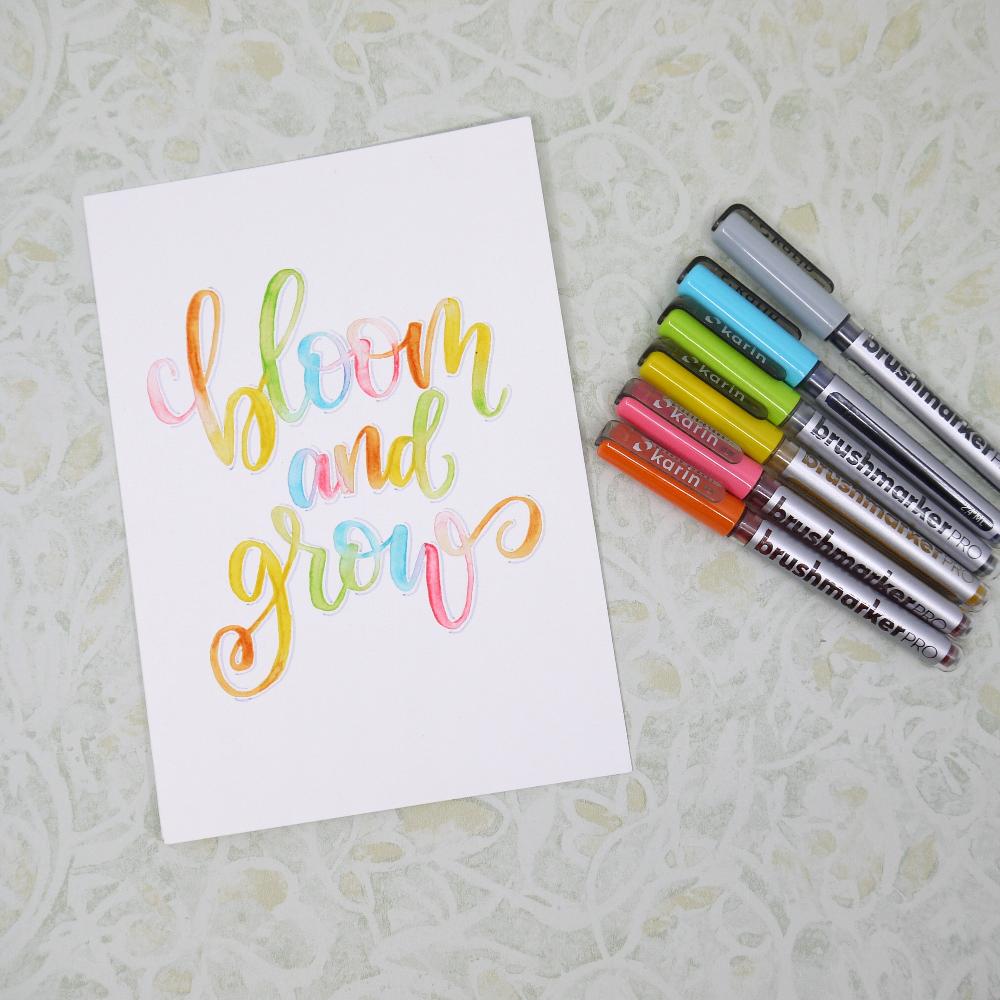 bloom
and
grow
karin
brushmarker
karin
karin
brushmarkerPRO
brushmarkerPRO
karin
brushmarkerPRO
karin
brushmarkerPRO